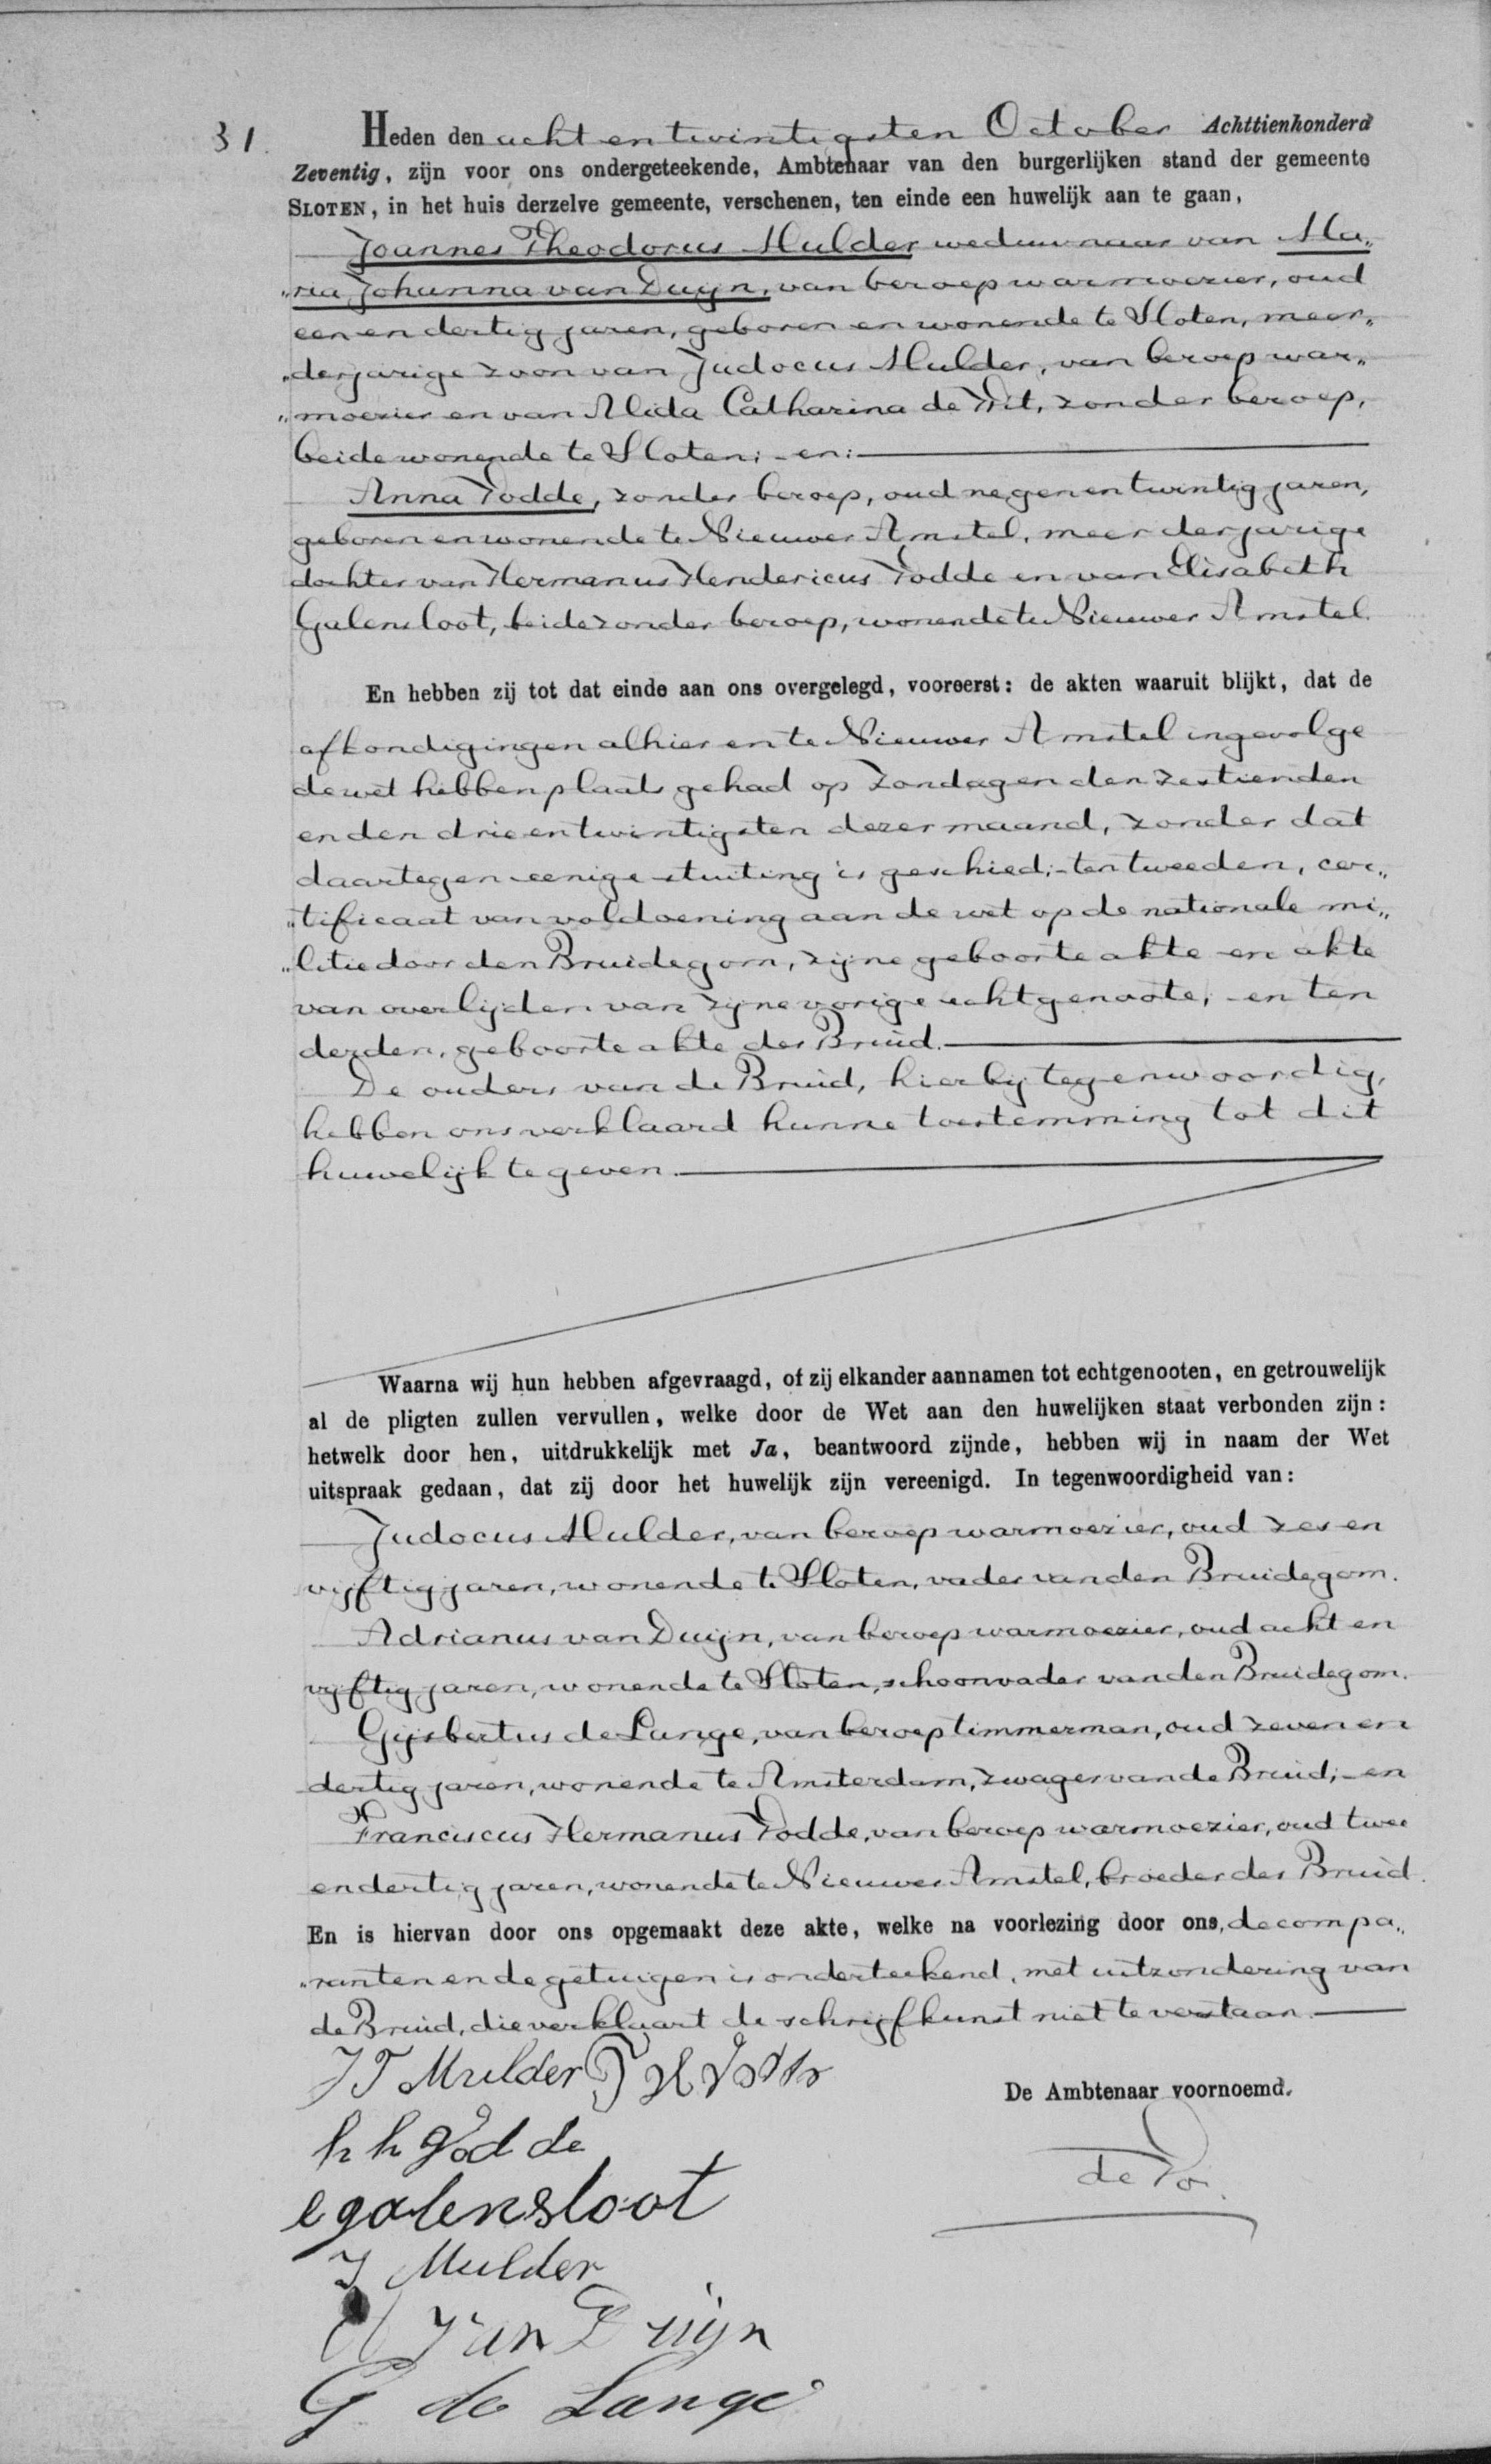 31.
Heden den acht en twintigsten October Achttienhonderd
Zeventig, zijn voor ons ondergeteekende, Ambtenaar van den burgerlijken stand der gemeente
SLOTEN, in het huis derzelve gemeente, verschenen, ten einde een huwelijk aan te gaan,
Joannes Theodorus Mulder weduwnaar van Ma„
„ria Johanna van Duijn, van beroep warmoezier, oud
een en dertig jaren, geboren en wonende te Sloten, meer„
„derjarige zoon van Judocus Mulder, van beroep war„
„moezier en van Alida Catharina de Wit, zonder beroep,
beide wonende te Sloten; - en:
Anna Vodde, zonder beroep, oud negen en twintig jaren,
geboren en wonende te Nieuwer Amstel, meerderjarige
dochter van Hermanus Hendericus Vodde en van Elisabeth
Galensloot, beide zonder beroep, wonende te Nieuwer Amstel.
En hebben zij tot dat einde aan ons overgelegd, vooreerst: de akten waaruit blijkt, dat de
afkondigingen alhier en te Nieuwer Amstel ingevolge
de wet hebben plaats gehad op Zondagen den zestienden
en den drie en twintigsten dezer maand, zonder dat
daartegen eenige stuiting is geschied; - ten tweeden, cer„
„tificaat van voldoening aan de wet op de nationale mi„
„litie door den Bruidegom, zijne geboorte akte en akte
van overlijden van zijne vorige echtgenoote; - en ten
derden, geboorte akte der Bruid.
De ouders van de Bruid, hierbij tegenwoordig,
hebben ons verklaard hunne toestemming tot dit
huwelijk te geven.
Waarna wij hun hebben afgevraagd, of zij elkander aannamen tot echtgenooten, en getrouwelijk
al de pligten zullen vervullen, welke door de Wet aan den huwelijken staat verbonden zijn:
hetwelk door hen, uitdrukkelijk met Ja, beantwoord zijnde, hebben wij in naam der Wet
uitspraak gedaan, dat zij door het huwelijk zijn vereenigd. In tegenwoordigheid van:
Judocus Mulder, van beroep warmoezier, oud zes en
vijftig jaren, wonende te Sloten, vader van den Bruidegom.
Adrianus van Duijn, van beroep warmoezier, oud acht en
vijftig jaren, wonende te Sloten, schoonvader van den Bruidegom.
Gijsbertus de Lange, van beroep timmerman, oud zeven en
dertig jaren, wonende te Amsterdam, zwager van de Bruid; - en
Franciscus Hermanus Vodde, van beroep warmoezier, oud twee
en dertig jaren, wonende te Nieuwer Amstel, broeder der Bruid.
En is hiervan door ons opgemaakt deze akte, welke na voorlezing door ons, de compa„
„ranten en de getuigen is onderteekend, met uitzondering van
de Bruid, die verklaart de schrijfkunst niet te verstaan.
J T Mulder F H Vodde
De Ambtenaar voornoemd.
h h Vodde
e galensloot
J Mulder
A van Duijn
G de Lange